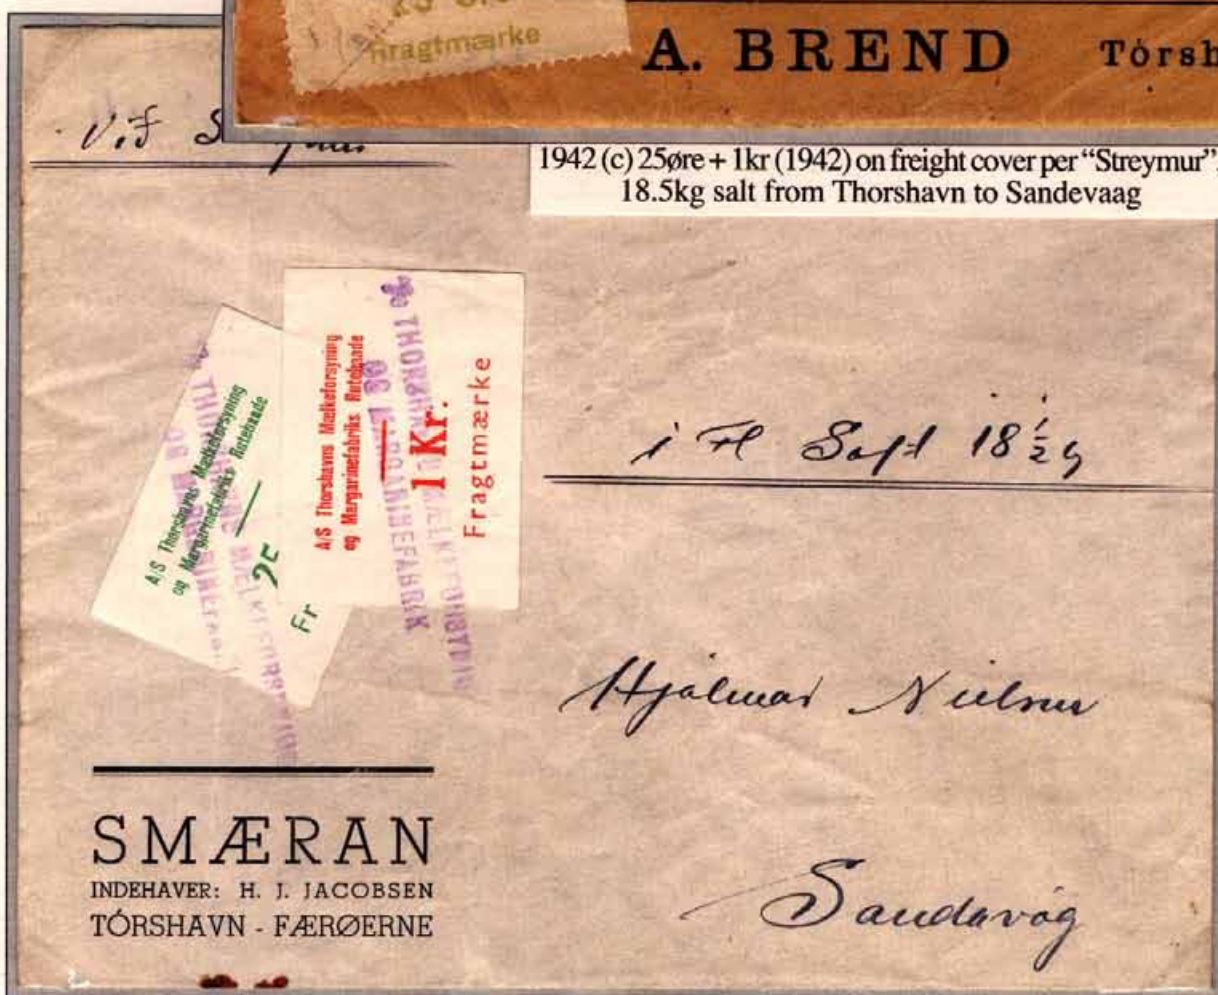 Fragtmærke
A. BREND Tórsh
Við S
1942 (c) 25øre + 1kr (1942) on freight cover per “Streymur”.
18.5kg salt from Thorshavn to Sandevaag
A/S Thorshavns Mælkeforsyning
og Margarinefabriks Rutebaade
25
Fr
THORSHAVNS MÆLKEFORSYNING
OG MARGARINEFABRIK
A/S Thorshavns Mælkeforsyning
og Margarinefabriks Rutebaade
1 Kr.
Fragtmærke
THORSHAVNS MÆLKEFORSYNING
OG MARGARINEFABRIK
1 Fl Saft 18 1/2
Hjalmar Nielsen
Sandavág
SMÆRAN
INDEHAVER: H. J. JACOBSEN
TÓRSHAVN - FÆRØERNE